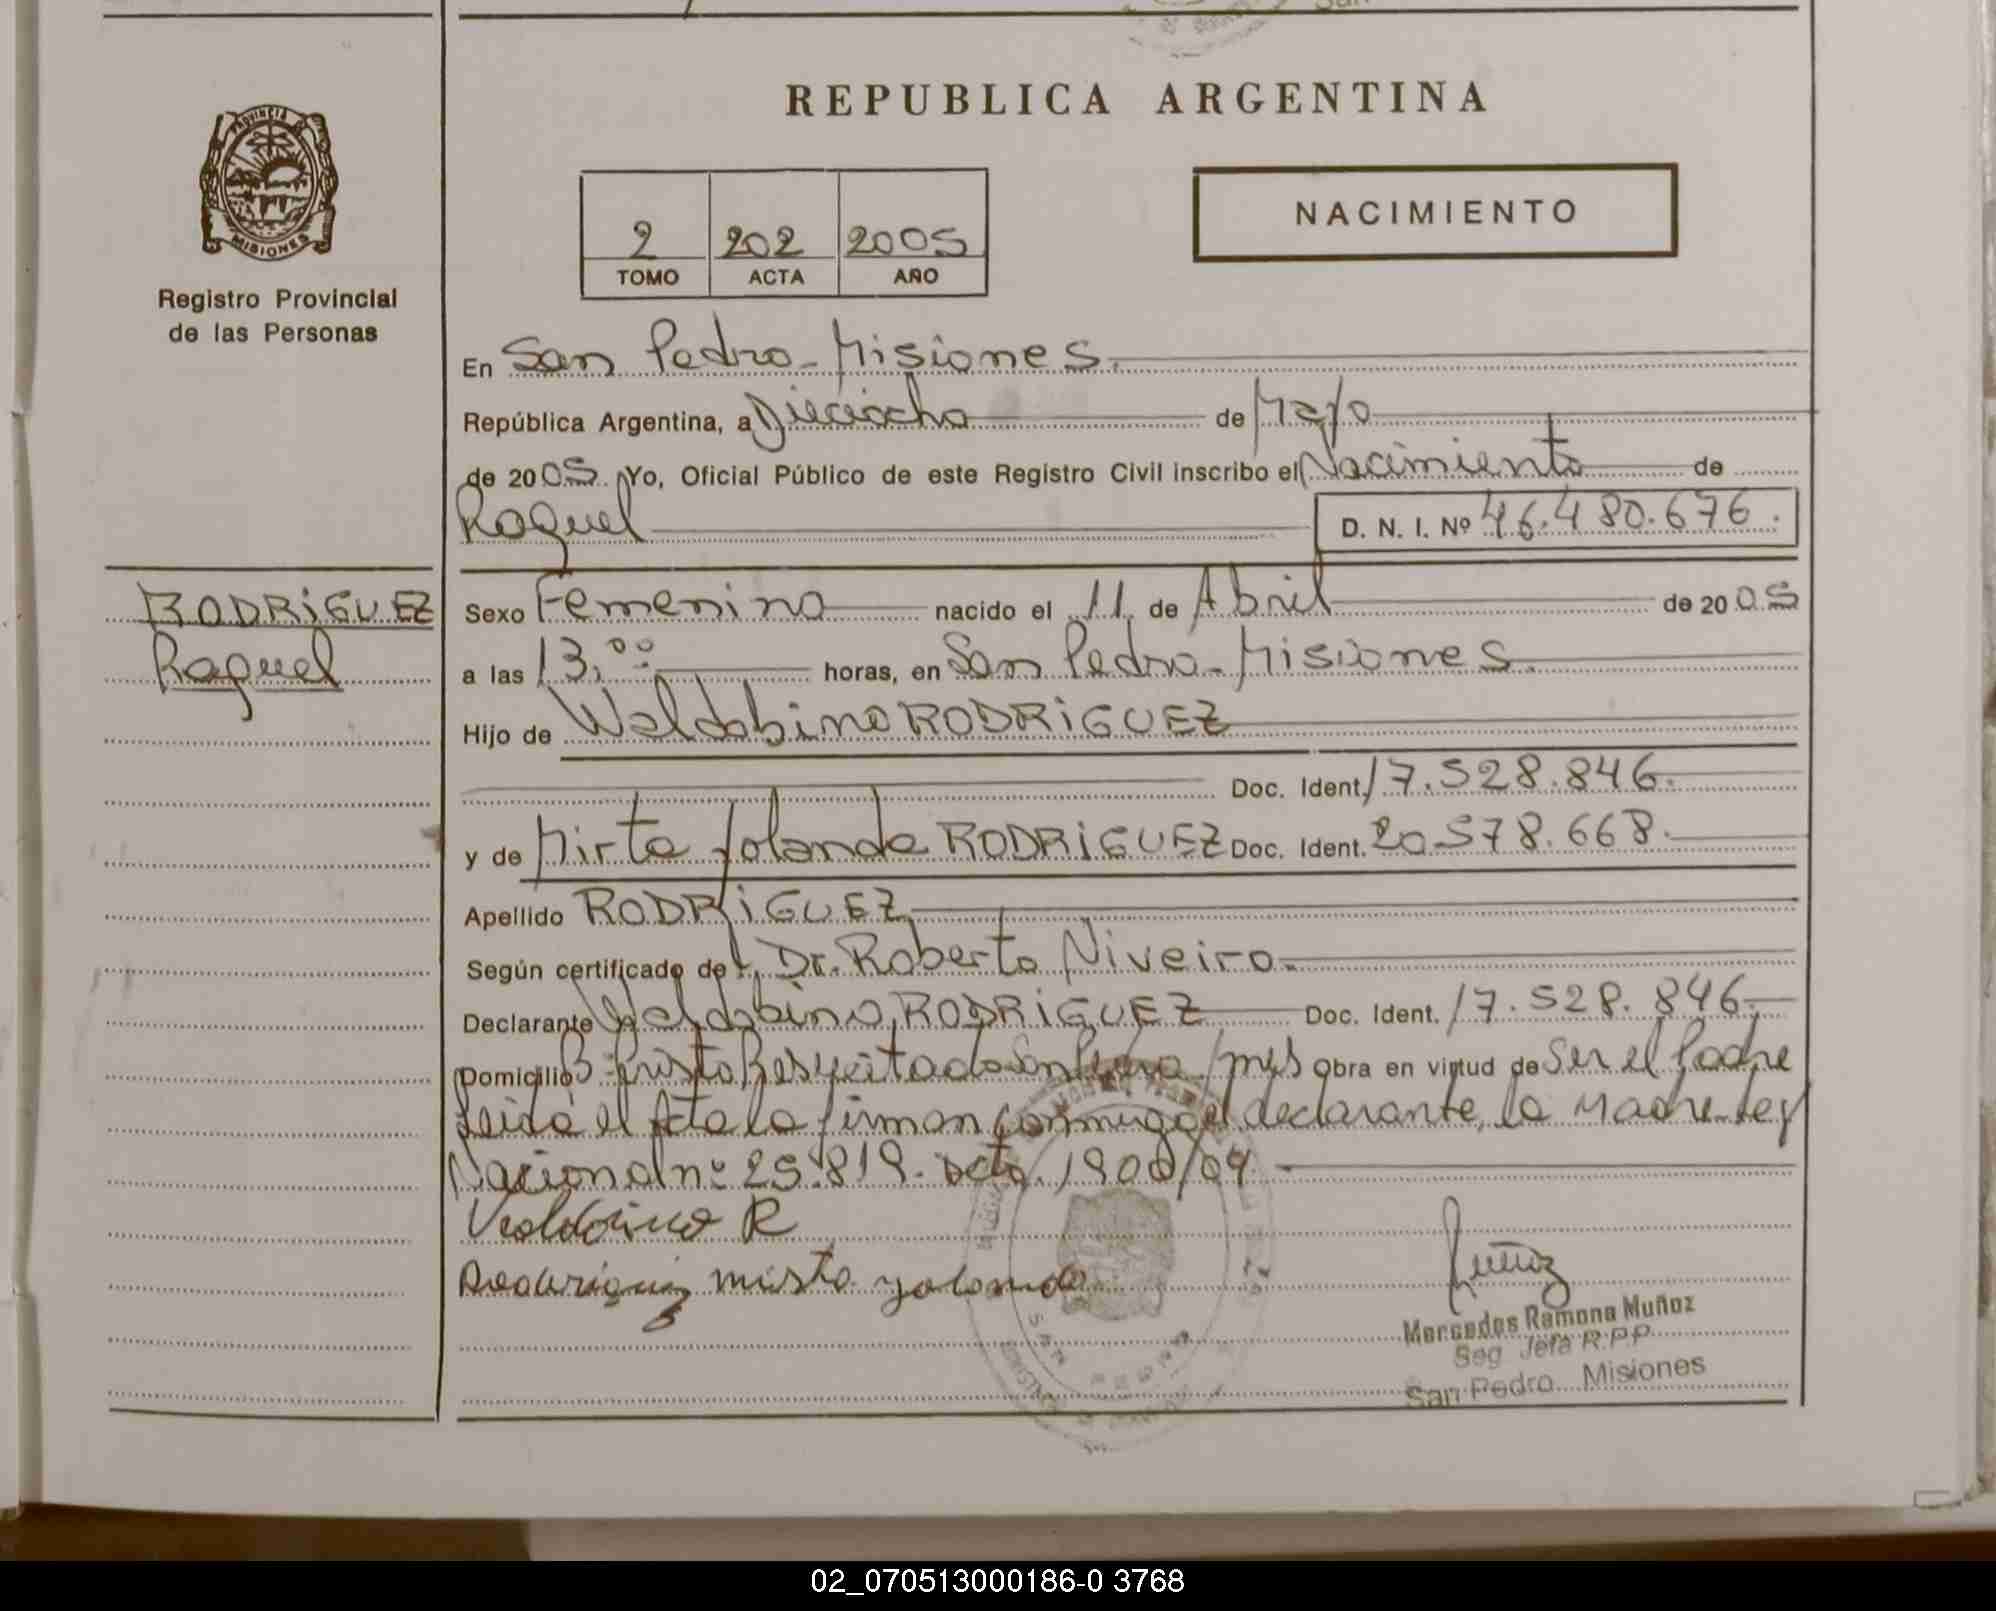 REPUBLICA ARGENTINA
PROVINCIA DE
MISIONES
Registro Provincial
de las Personas
2 202 2005
TOMO ACTA AÑO
NACIMIENTO
En San Pedro - Misiones.
República Argentina, a Dieciocho de Mayo
de 2005 Yo, Oficial Público de este Registro Civil inscribo el Nacimiento de
Raquel D. N. I. Nº 46.480.676.
RODRiGUEZ
Raquel
Sexo Femenino nacido el 11 de Abril de 2005
a las 13,00 horas, en San Pedro - Misiones.
Hijo de Waldobino RODRiGUEZ
Doc. Ident. 17.528.846.
y de Mirta Yolanda RODRiGUEZ Doc. Ident. 20.578.668.
Apellido RODRiGUEZ
Según certificado del, Dr. Roberto Niveiro.
Declarante Waldobino RODRiGUEZ Doc. Ident. 17.528.846
Domicilio Bº Cristo Resucitado San Pedro / mns obra en virtud de Ser el Padre
Leida el Acta la firman conmigo el declarante, la Madre. Ley
Nacional nº 25.819. Dcto. 1900/04
Valdovino R
Rodriguez mirta yolanda
Mercedes Ramona Muñoz
Seg Jefa R.P.P.
San Pedro Misiones
SAN PEDRO
MISIONES
02_070513000186-0 3768